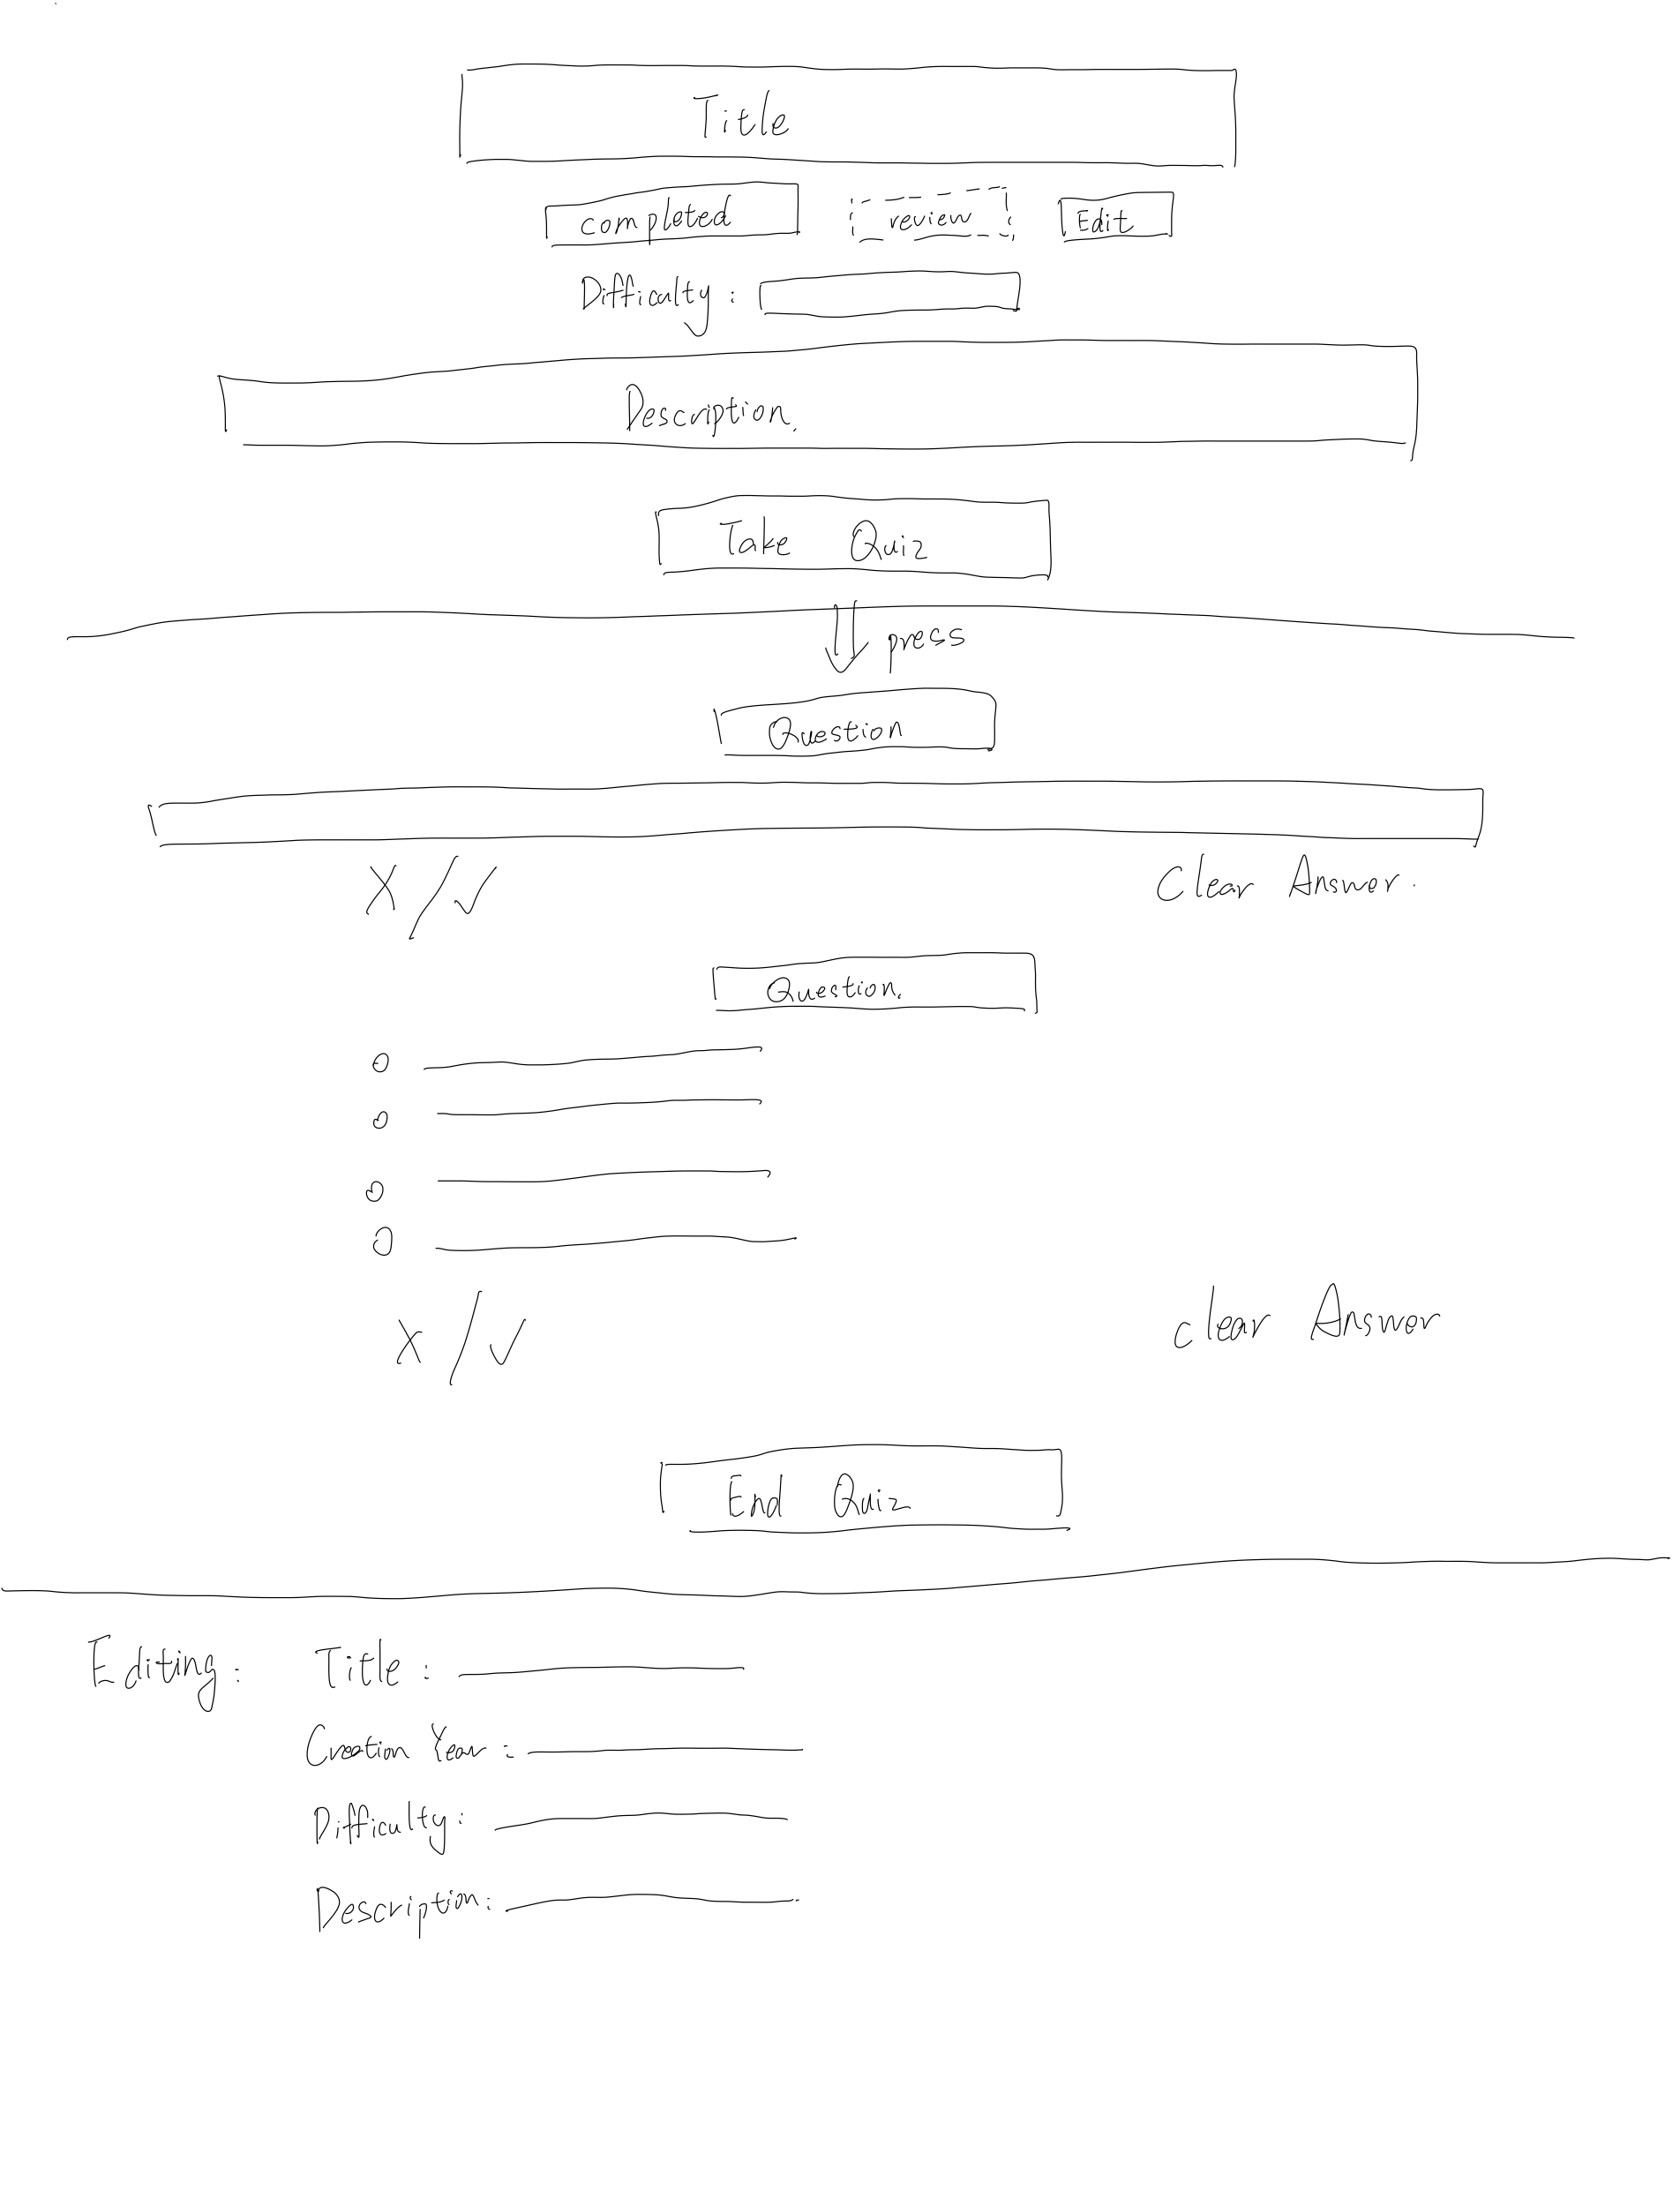 Title
completed review Edit
Difficulty :
Description.
Take Quiz
press
Question
X / ✓ Clear Answer.
Question.
X / ✓ clear Answer
End Quiz
Editing: Title :
Creation Year :
Difficulty :
Description: